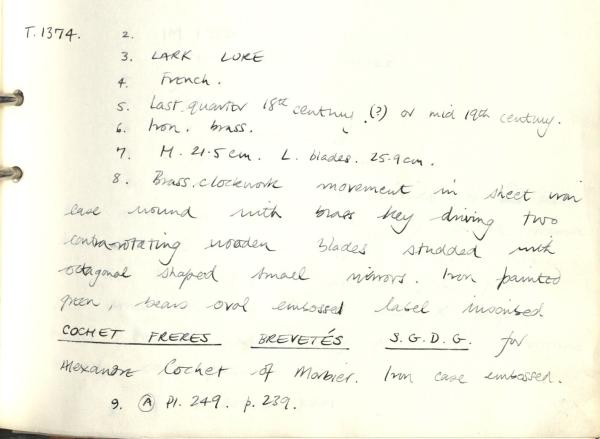 T.1374. 2.
3. LARK LURE
4. French.
5. Last quarter 18th century (?) or mid 19th century.
6. Iron. brass.
7. H. 21.5 cm. L. blades. 25.9 cm.
8. Brass clockwork movement in sheet iron
case wound with brass key driving two
contra-rotating wooden blades studded with
octagonal shaped small mirrors. Iron painted
green, bears oval embossed label inscribed
COCHET FRERES BREVETÉS S.G.D.G. for
Alexandre Cochet of Morbier. Iron case embossed.
9. A Pl. 249. p. 239.